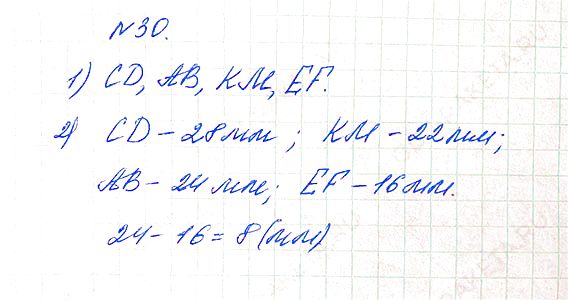 №30.
1) CD, AB, KM, EF.
2) CD – 28мм; KM – 22мм;
AB – 24 мм; EF – 16мм.
24 – 16 = 8 (мм)